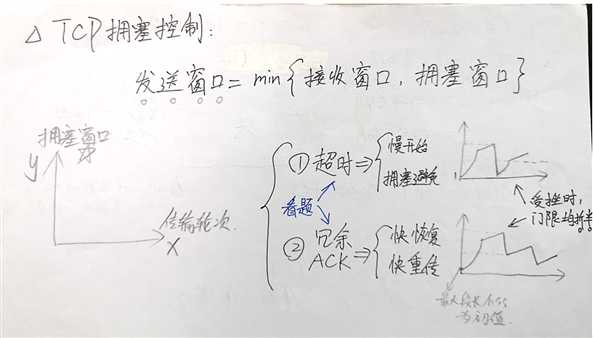 △ TCP拥塞控制:
发送窗口 = min{接收窗口, 拥塞窗口}
拥塞窗口
y
传输轮次
x
① 超时 ⇒ 慢开始
拥塞避免
看题
② 冗余
ACK ⇒ 快恢复
快重传
1
受挫时,
门限均折半
最大段长
为初值.